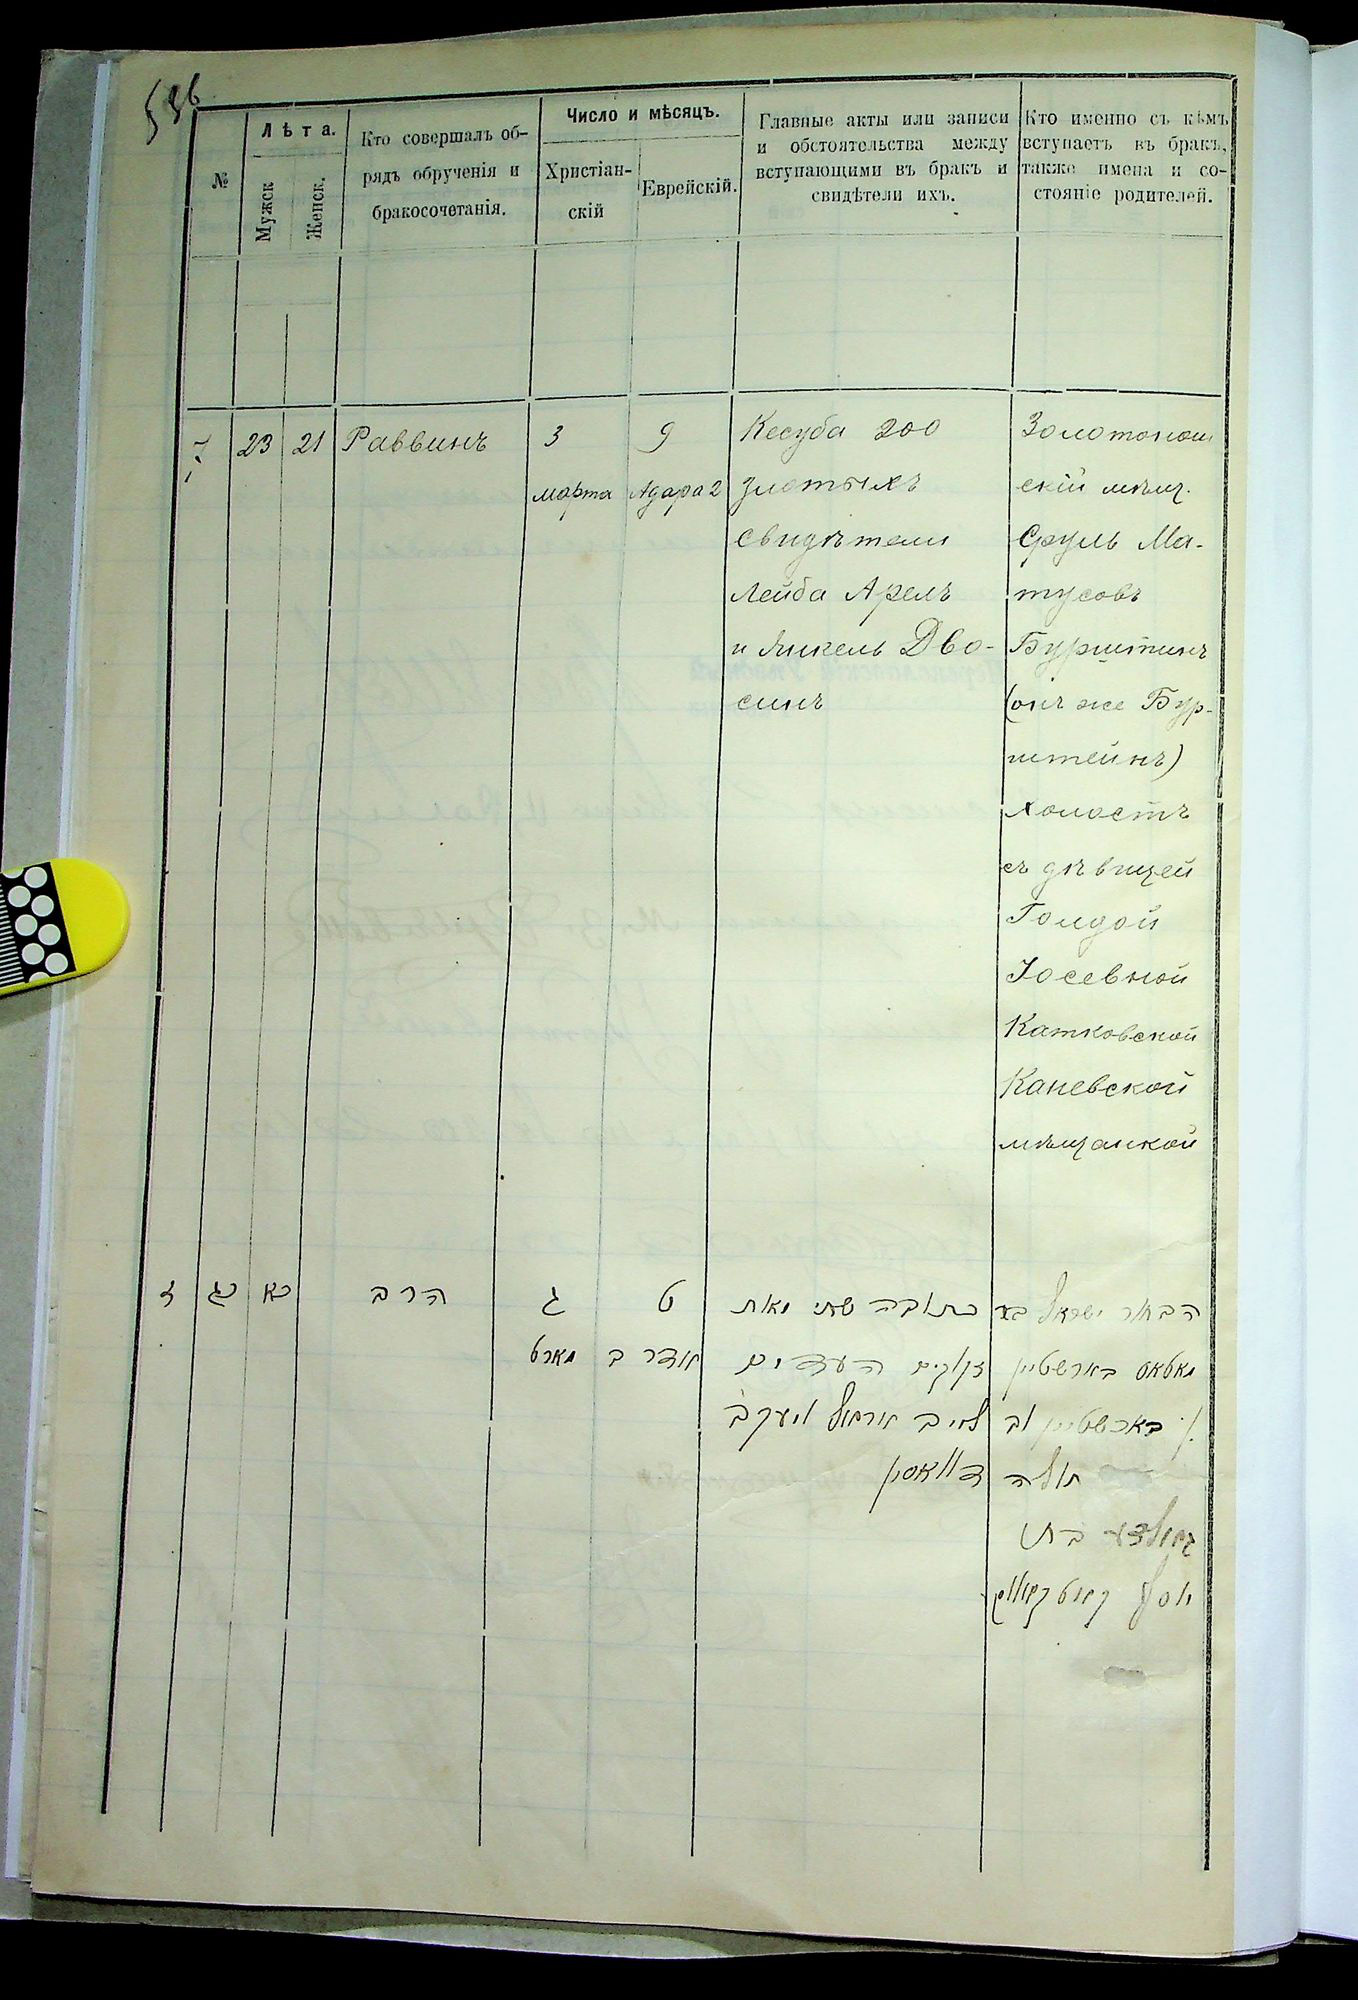 536
№
Лѣта.
Мужск
Женск.
Кто совершалъ об-
рядъ обрученія и
бракосочетанія.
Число и мѣсяцъ.
Христіан-
скій
Еврейскій.
Главные акты или записи
и обстоятельства между
вступающими въ бракъ и
свидѣтели ихъ.
Кто именно съ кѣмъ
вступаетъ въ бракъ,
также имена и со-
стояніе родителей.
7
23
21
Раввинъ
3
марта
9
Адара 2
Кесуба 200
злотыхъ
свидѣтели
Лейба Арелъ
и Янкель Дво-
синъ
Золотонош
скій мѣщ.
Сруль Ма-
тусовъ
Бурштинъ
(онъ же Бур-
штейнъ)
холостъ
съ дѣвицей
Голдой
Іосевной
Катковской
Каневской
мѣщанкой
ז
כג
כא
הרב
ג
מארט
ט
אדר ב
כתובה שתי מאת
זקוקים העדים
לייב אראל ויעקב
דוואסין
הבחור ישראל בן
מאטאס בארשטיין
בארשטיין
בתולה
גאלדע בת
יוסף קאטקאווסק